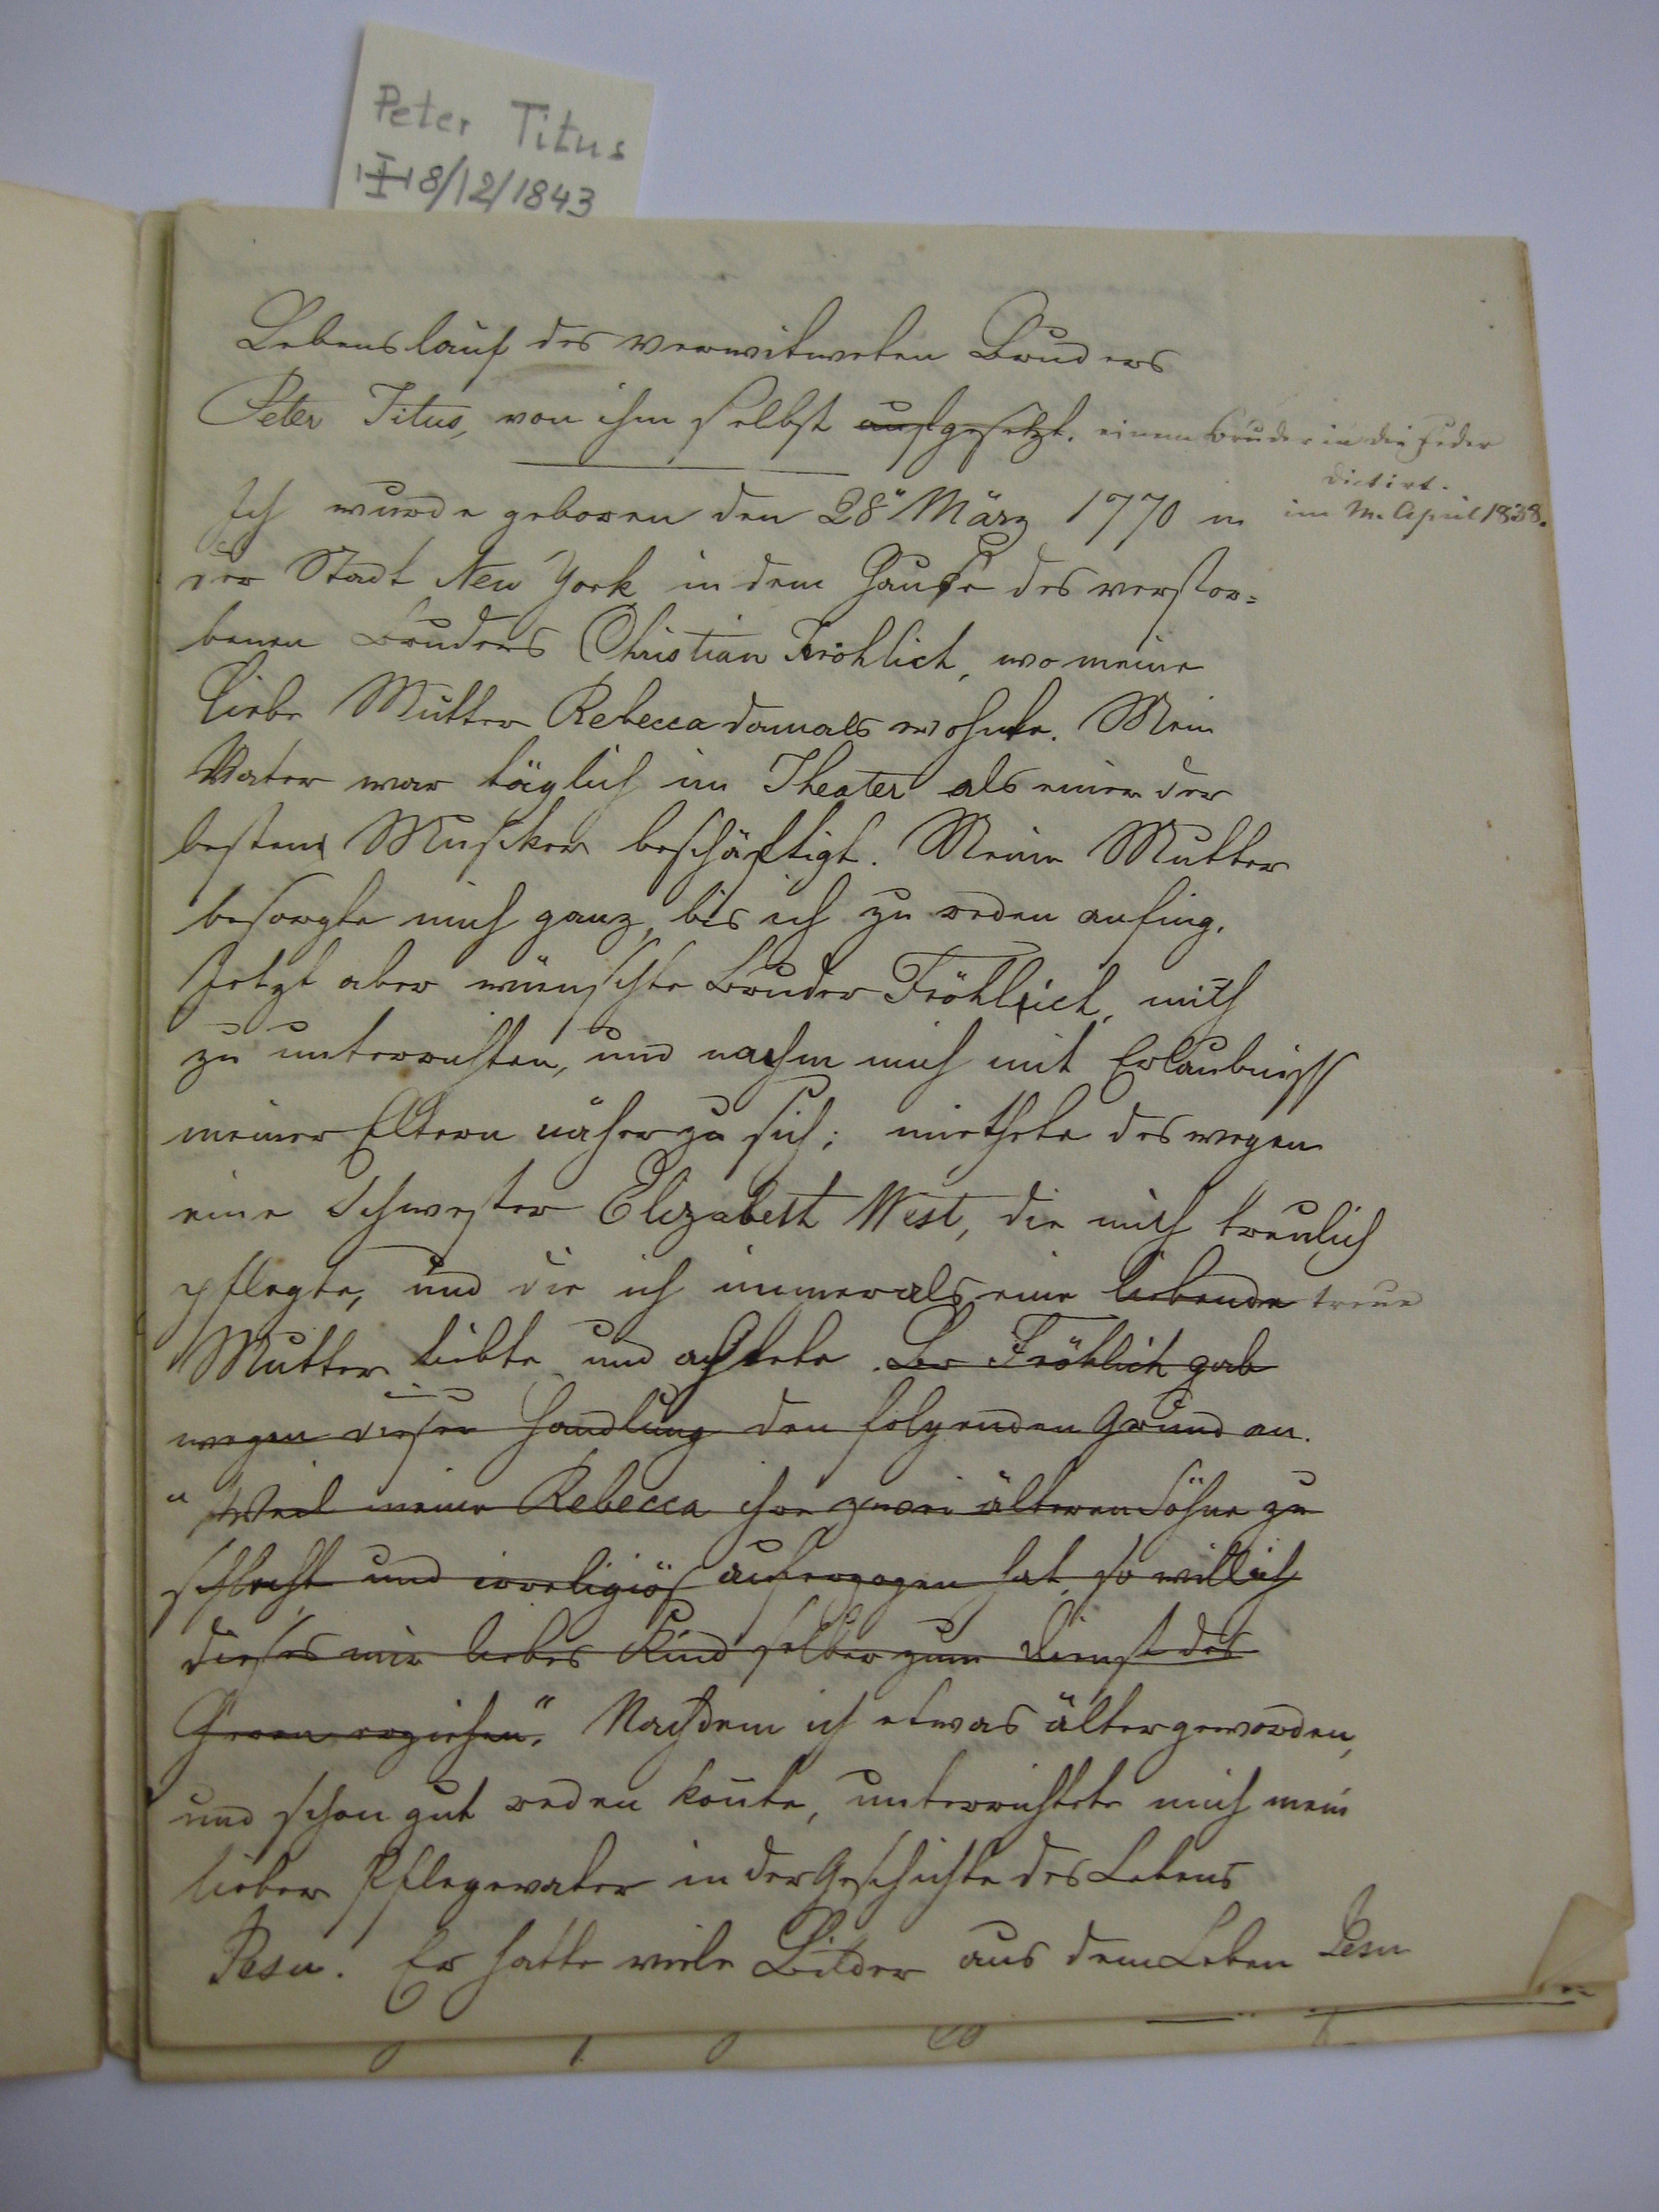 Peter Titus
I 8/12/1843
Lebenslauf des verwitweten Bruders
Peter Titus, von ihm selbst aufgesetzt. einem Bruder in die Feder
dictirt.
im M. April 1838.
Ich wurde geboren den 28 März 1770 in
der Stadt New York in dem Hause des verstor=
benen Bruders Christian Fröhlich, wo meine
liebe Mutter Rebecca damals wohnte. Mein
Vater war täglich im Theater als einer der
besten Musiker beschäftigt. Meine Mutter
besorgte mich ganz, bis ich zu reden anfing.
Jetzt aber wünschte Bruder Fröhlich, mich
zu unterrichten, und nahm mich mit Erlaubniss
meiner Eltern näher zu sich; miethete deswegen
eine Schwester Elizabeth West, die mich treulich
pflegte, und die ich immer als eine liebende treue
Mutter liebte und achtete. Br Fröhlich gab
wegen dieser Handlung den folgenden Grund an.
"Weil meine Rebecca ihre zwei älteren Söhne zu
schlecht und irreligiös auferzogen hat, so will ich
dieses mir liebes Kind selber zum Dienst des
Herrn erziehen". Nachdem ich etwas älter geworden,
und schon gut reden konte, unterrichtete mich mein
lieber Pflegevater in der Geschichte des Lebens
Jesu. Er hatte viele Bilder aus dem Leben Jesu